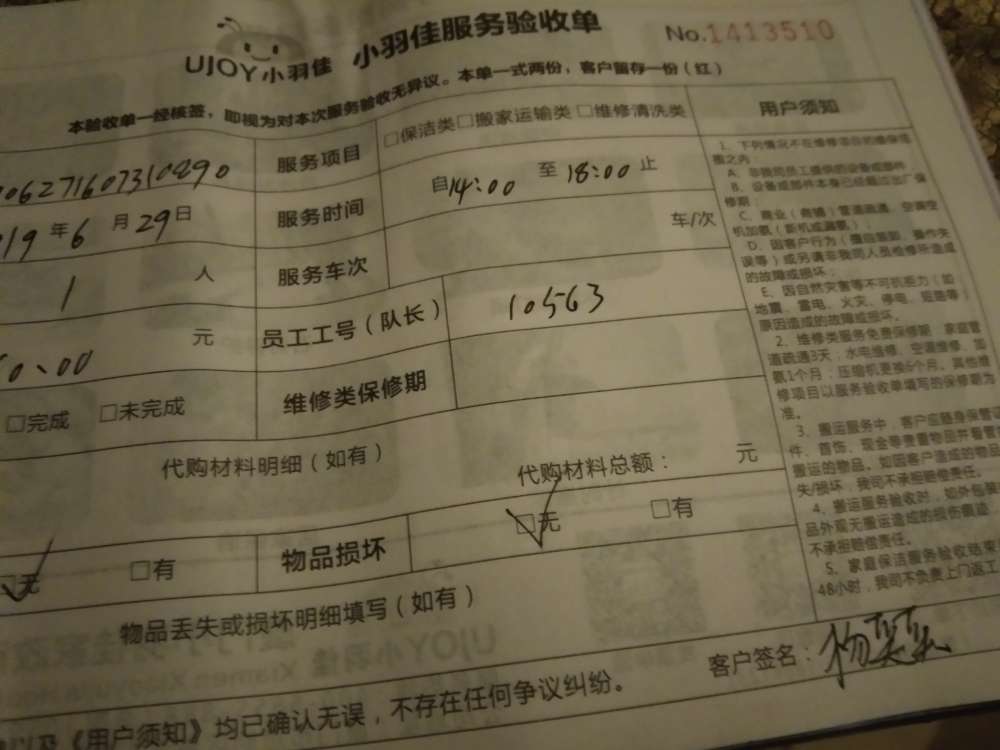 UJOY小羽佳 小羽佳服务验收单 No.1413510
本验收单一经核签，即视为对本次服务验收无异议。本单一式两份，客户留存一份（红）
服务项目 □保洁类□搬家运输类 □维修清洗类
19年6月29日 服务时间 自14:00 至 18:00 止
1 人 服务车次 车/次
0.00 元 员工工号（队长） 10563
□完成 □未完成 维修类保修期
代购材料明细（如有） 代购材料总额： 元
□无 □有 物品损坏 □无 □有
物品丢失或损坏明细填写（如有）
客户签名：
《用户须知》均已确认无误，不存在任何争议纠纷。
用户须知
1、下列情况不在维修项目的维保范
围之内：
A、非我司员工提供的设备或部件
B、设备或部件本身已经超过出厂保
修期；
C、商业（商铺）管道疏通、空调空
机加氨（新机或漏氨）；
D、因客户行为（擅自拆卸、操作失
误等）或另请非我司人员检修所造成
的故障或损坏；
E、因自然灾害等不可抗拒力（如
地震、雷电、火灾、停电、短路等）
原因造成的故障或损坏。
2、维修类服务免费保修期：家庭管
道疏通3天，水电维修、空调维修、加
氨1个月；压缩机更换6个月。其他维
修项目以服务验收单填写的保修期为
准。
3、搬运服务中，客户应随身保管证
件、首饰、现金等贵重物品并看管
搬运的物品。如因客户造成的物品
失/损坏，我司不承担赔偿责任。
4、搬运服务验收时，如外包装
品外观无搬运造成的损伤痕迹，
不承担赔偿责任。
5、家庭保洁服务验收结束
48小时，我司不负责上门返工